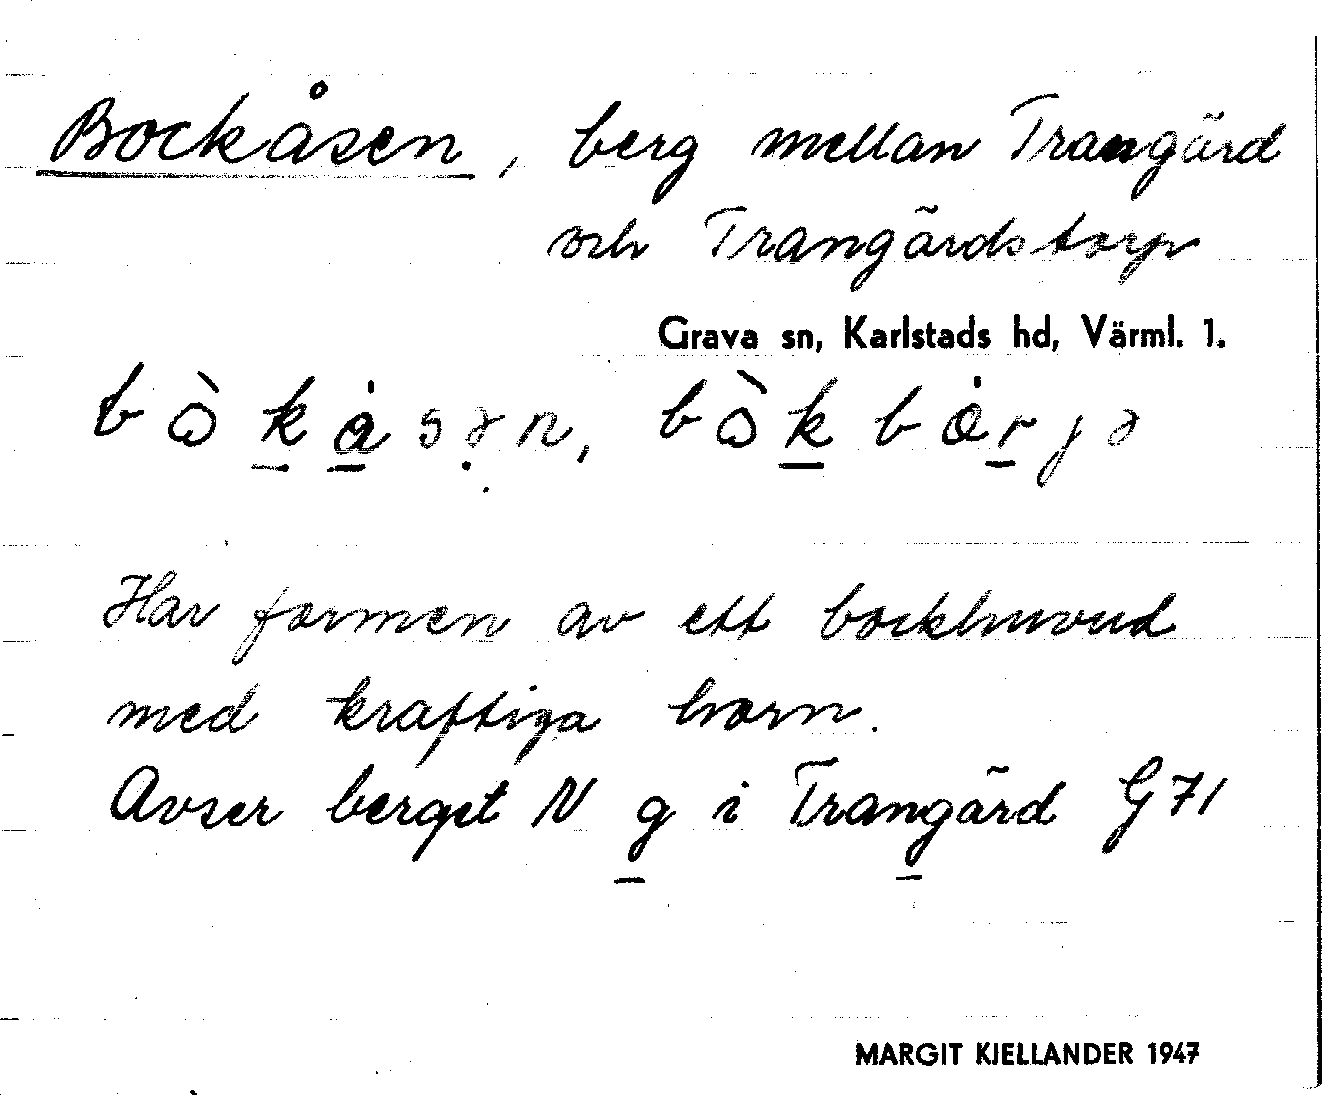 Bockåsen, berg mellan Trangärd
och Trangärdstorp
Grava sn, Karlstads hd, Värml. 1.
Har formen av ett bockhuvud
med kraftiga horn.
Avser berget N g i Trangärd G71
MARGIT KJELLANDER 1947